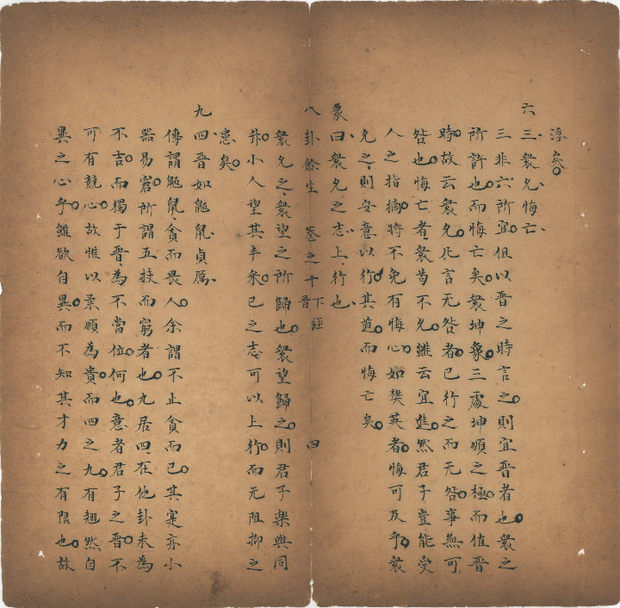 矣
六三衆允悔亡
三非六所宜但以晉之時言之則宜晉者也衆之
所許也而悔亡矣衆坤象三處坤順之極而值晉
時故云衆允凡言无咎者已行之而无咎事無可
咎也悔亡者衆苟不允雖云宜進然君子豈能受
人之指摘時不免有悔心如樊英者悔可及乎衆
允之則安意以行其道而悔亡矣
象曰衆允之志上行也
八卦餘生 卷之十 下經 晉 四
衆允之衆望之所歸也衆望歸之則君子樂與同
升小人望其矣已之志可以上行而无阻抑之
患矣
九四晉如鼫鼠貞厲
傳謂鼫鼠貪而畏人余謂不止貪而已其寔亦小
器易窘所謂五技而窮者也九居四在他卦未為
不吉而獨于晉為不當位何也意者君子之晉不
可有競心故惟以柔順為貴而四之九有翹然自
異之心乎雖欲自異而不知其才力之有限也故